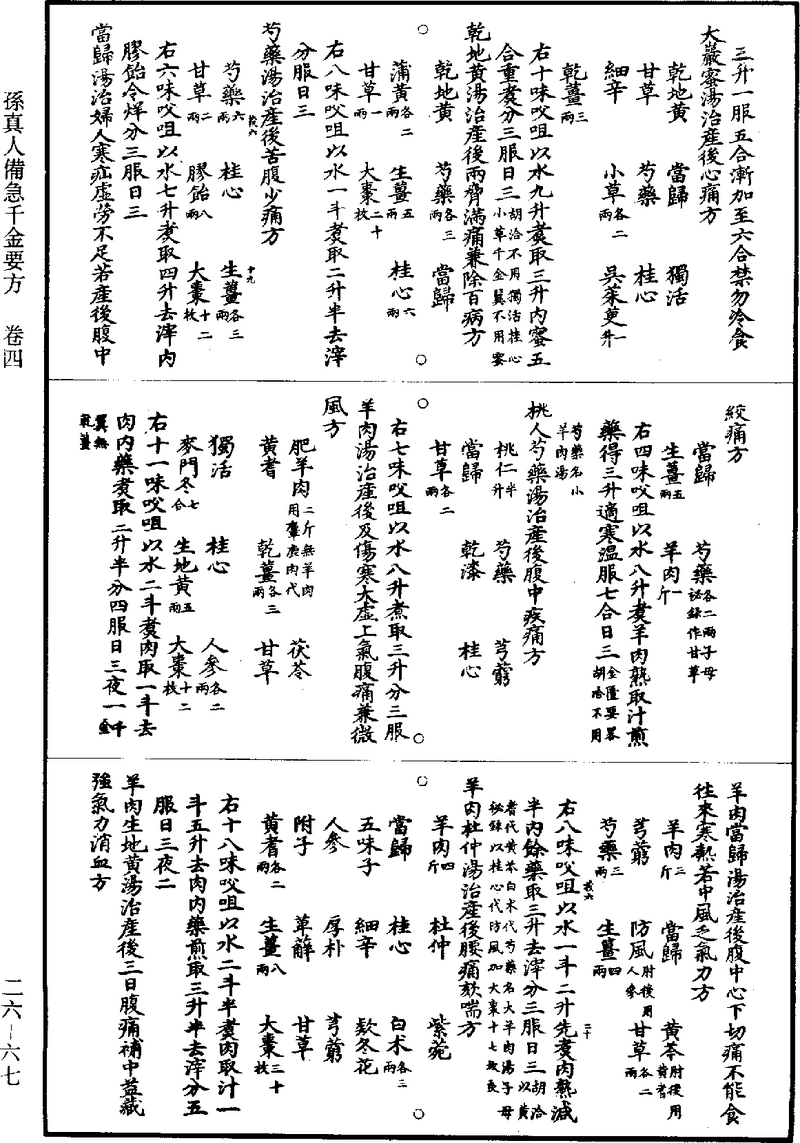 三升一服五合漸加至六合禁勿冷食
大巖蜜湯治産後心痛方
乾地黃　當歸　獨活
甘草　芍藥　桂心
細辛　小草各二兩　吳茱萸一升
乾薑三兩
右十味㕮咀以水九升煑取三升內蜜五
合重煑分三服日三胡洽不用獨活桂心小草千金翼不用蜜
乾地黃湯治産後兩脅滿痛兼除百病方
乾地黃　芍藥各三兩　當歸
蒲黃各二兩　生薑五兩　桂心六兩
甘草一兩　大棗二十
右八味㕮咀以水一斗煑取二升半去滓
分服日三
芍藥湯治産後苦腹少痛方
芍藥六兩　桂心　生薑各三兩
甘草二兩　膠飴八兩　大棗十二枚
右六味㕮咀以水七升煑取四升去滓內
膠飴令烊分三服日三
當歸湯治婦人寒疝虛勞不足若産後腹中
絞痛方
當歸　芍藥各二兩子母祕錄作甘草
生薑五兩　羊肉一斤
右四味㕮咀以水八升煑羊肉熟取汁煎
藥得三升適寒溫服七合日三金匱要畧胡洽不用
芍藥名小羊肉湯
桃人芍藥湯治産後腹中疾痛方
桃仁半升　芍藥　芎藭
當歸　乾漆　桂心
甘草各二兩
右七味㕮咀以水八升煮取三升分三服
羊肉湯治産後及傷寒大虛上氣腹痛兼微
風方
肥羊肉二斤無羊肉用麞鹿肉代　茯苓
黃耆　乾薑各三兩　甘草
獨活　桂心　人參各二兩
麥門冬七合　生地黃五兩　大棗十二枚
右十一味㕮咀以水二斗煑肉取一斗去
肉內藥煑取二升半分四服日三夜一千金
翼無乾薑
羊肉當歸湯治産後腹中心下切痛不能食
往來寒熱若中風乏氣力方
羊肉三斤　當歸　黃芩肘後用黃耆
芎藭　防風肘後用人參　甘草各二兩
芍藥三兩　生薑四兩
右八味㕮咀以水一斗二升先煑肉熟減
半內餘藥取三升去滓分三服日三胡洽以黃
耆代黃芩白朮代芍藥名大羊肉湯子母祕錄以桂心代防風加大棗十七枚良
羊肉杜仲湯治産後腰痛欬喘方
羊肉四斤　杜仲　紫菀
當歸　桂心　白朮各三兩
五味子　細辛　欵冬花
人參　厚朴　芎藭
附子　萆薢　甘草
黃耆各二兩　生薑八兩　大棗三十枚
右十八味㕮咀以水二斗半煑肉取汁一
斗五升去肉內藥煎取三升半去滓分五
服日三夜二
羊肉生地黃湯治産後三日腹痛補中益藏
強氣力消血方
孫真人備急千金要方　卷四
二六－六七